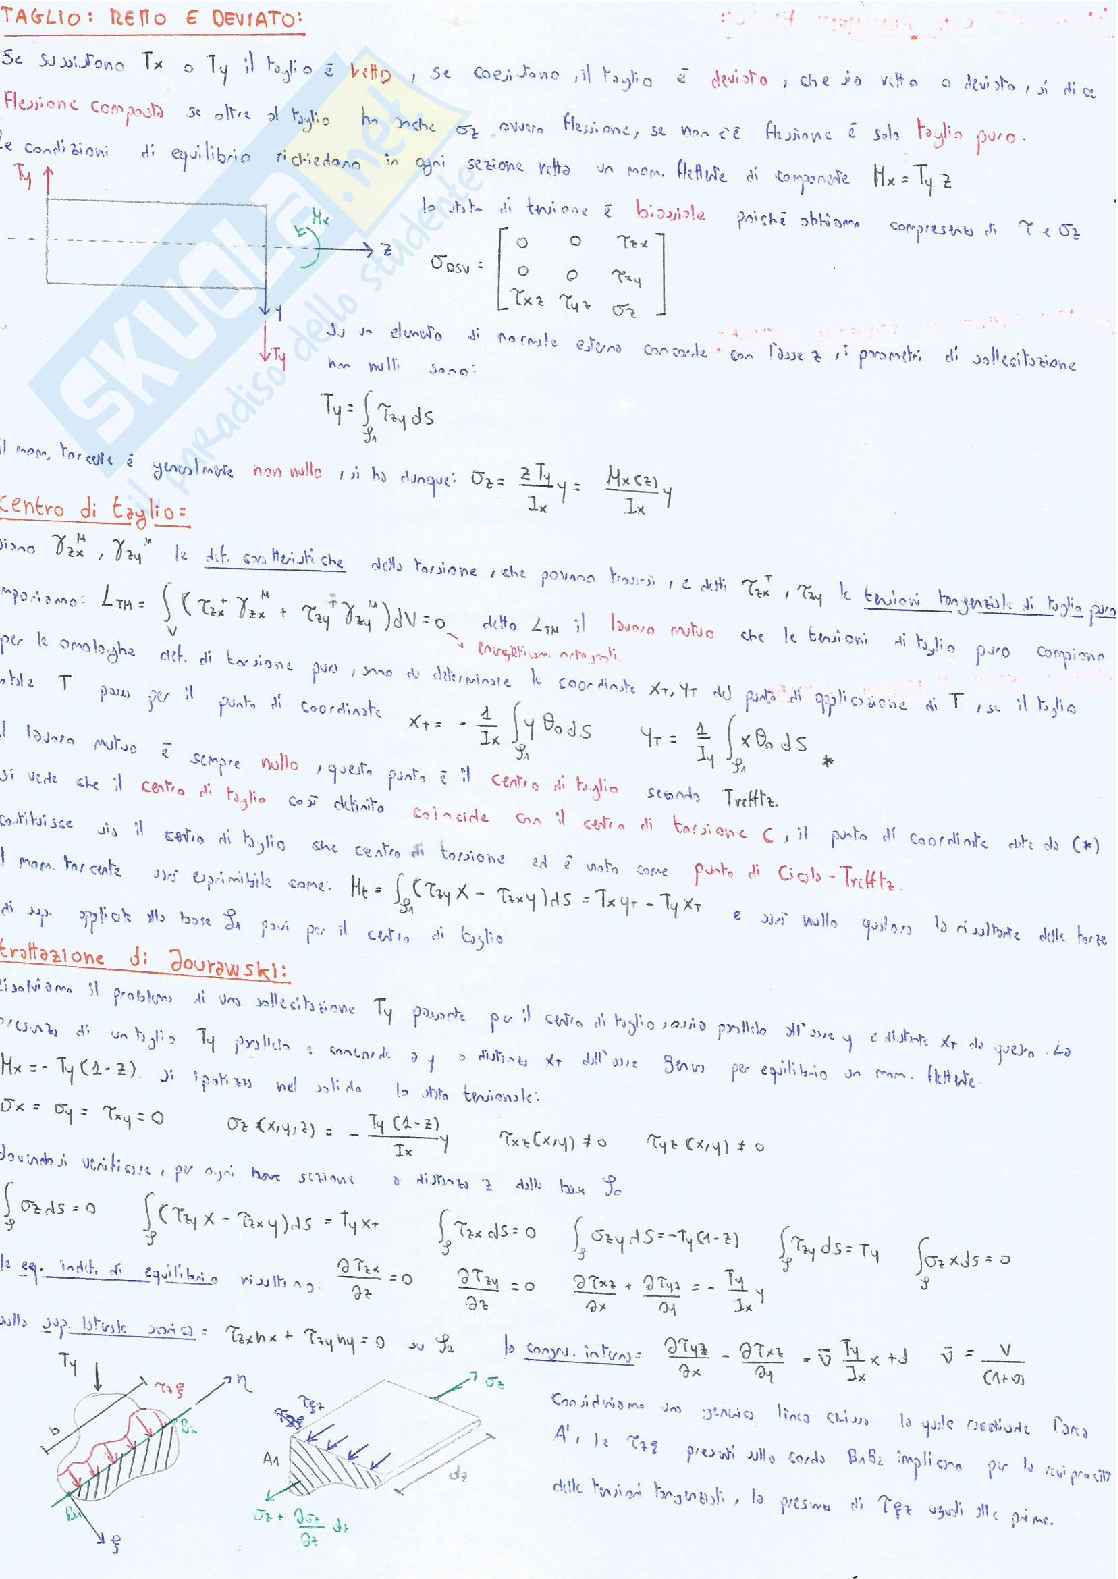 TAGLIO: RETTO E DEVIATO:
Se sussistono Tx o Ty il taglio è retto, se coesistono, il taglio è deviato, che sia retto o deviato, si dice
flessione composta se oltre al taglio ho anche σz ovvero flessione, se non c'è flessione è solo taglio puro.
le condizioni di equilibrio richiedono in ogni sezione retta un mom. flettente di componente Mx = Ty z
Ty
Mx
z
y
Ty
lo stato di tensione è biassiale poiché abbiamo compresenza di τ e σz
σDSV = [0 0 τzx
0 0 τzy
τxz τyz σz]
Su un elemento di normale esterna concorde con l'asse z, i parametri di sollecitazione
non nulli sono:
Ty = ∫ τzy dS
il mom. torcente è generalmente non nullo, si ha dunque: σz = z Ty / Ix y = Mx(z) / Ix y
centro di taglio:
siano γzx^M, γzy^M le def. caratteristiche della torsione, che possono trovarsi, e detti τzx^T, τzy le tensioni tangenziali di taglio puro
imponiamo: LTM = ∫V (τzx^T γzx^M + τzy^T γzy^M) dV = 0 detto LTM il lavoro mutuo che le tensioni di taglio puro compiono
per le omologhe def. di torsione pura, sono da determinare le coordinate xT, yT del punto di applicazione di T, se il taglio
totale T passa per il punto di coordinate xT = - 1/Ix ∫ y θ0 dS yT = 1/Iy ∫ x θ0 dS *
il lavoro mutuo è sempre nullo, questo punto è il centro di taglio secondo Trefftz.
si vede che il centro di taglio così definito coincide con il centro di torsione C, il punto di coordinate date da (*)
costituisce sia il centro di taglio che centro di torsione ed è noto come punto di Cicala-Trefftz.
il mom. torcente sarà esprimibile come: Mt = ∫ (τzy x - τzx y) dS = Tx yT - Ty xT e sarà nullo qualora la risultante delle forze
di sup. applicate alla base S1 passi per il centro di taglio
trattazione di Jourawski:
risolviamo il problema di una sollecitazione Ty passante per il centro di taglio, ossia parallela all'asse y e distante xT da questo. La
presenza di un taglio Ty parallelo e concorde a y a distanza xT dall'asse genera per equilibrio un mom. flettente
Mx = - Ty (1 - z). Si ipotizza nel solido lo stato tensionale:
σx = σy = τxy = 0 σz (x,y,z) = - Ty (1 - z) / Ix y τxz (x,y) ≠ 0 τyz (x,y) ≠ 0
dovendosi verificare, per ogni sezione a distanza z dalla base S0
∫ σz dS = 0 ∫ (τzy x - τzx y) dS = Ty xT ∫ τzx dS = 0 ∫ σz y dS = -Ty (1 - z) ∫ τzy dS = Ty ∫ σz x dS = 0
le eq. indef. di equilibrio risultano: ∂τzx/∂z = 0 ∂τzy/∂z = 0 ∂τxz/∂x + ∂τyz/∂y = - Ty/Ix y
sulla sup. laterale scarica: τzx nx + τzy ny = 0 su S2 la congru. interna: ∂τyz/∂x - ∂τxz/∂y = ν̄ Ty/Ix x + d ν̄ = ν/(1+ν)
Ty
b
τzξ
η
B2
B1
ξ
τξz
A1
σz
dz
σz + ∂σz/∂z dz
consideriamo una generica linea chiusa la quale racchiude l'area
A', le τzξ presenti sulla corda B1B2 implicano per la reciprocità
delle tensioni tangenziali, la presenza di τξz uguali alle prime.
SKUOLA.net
il paradiso dello studente